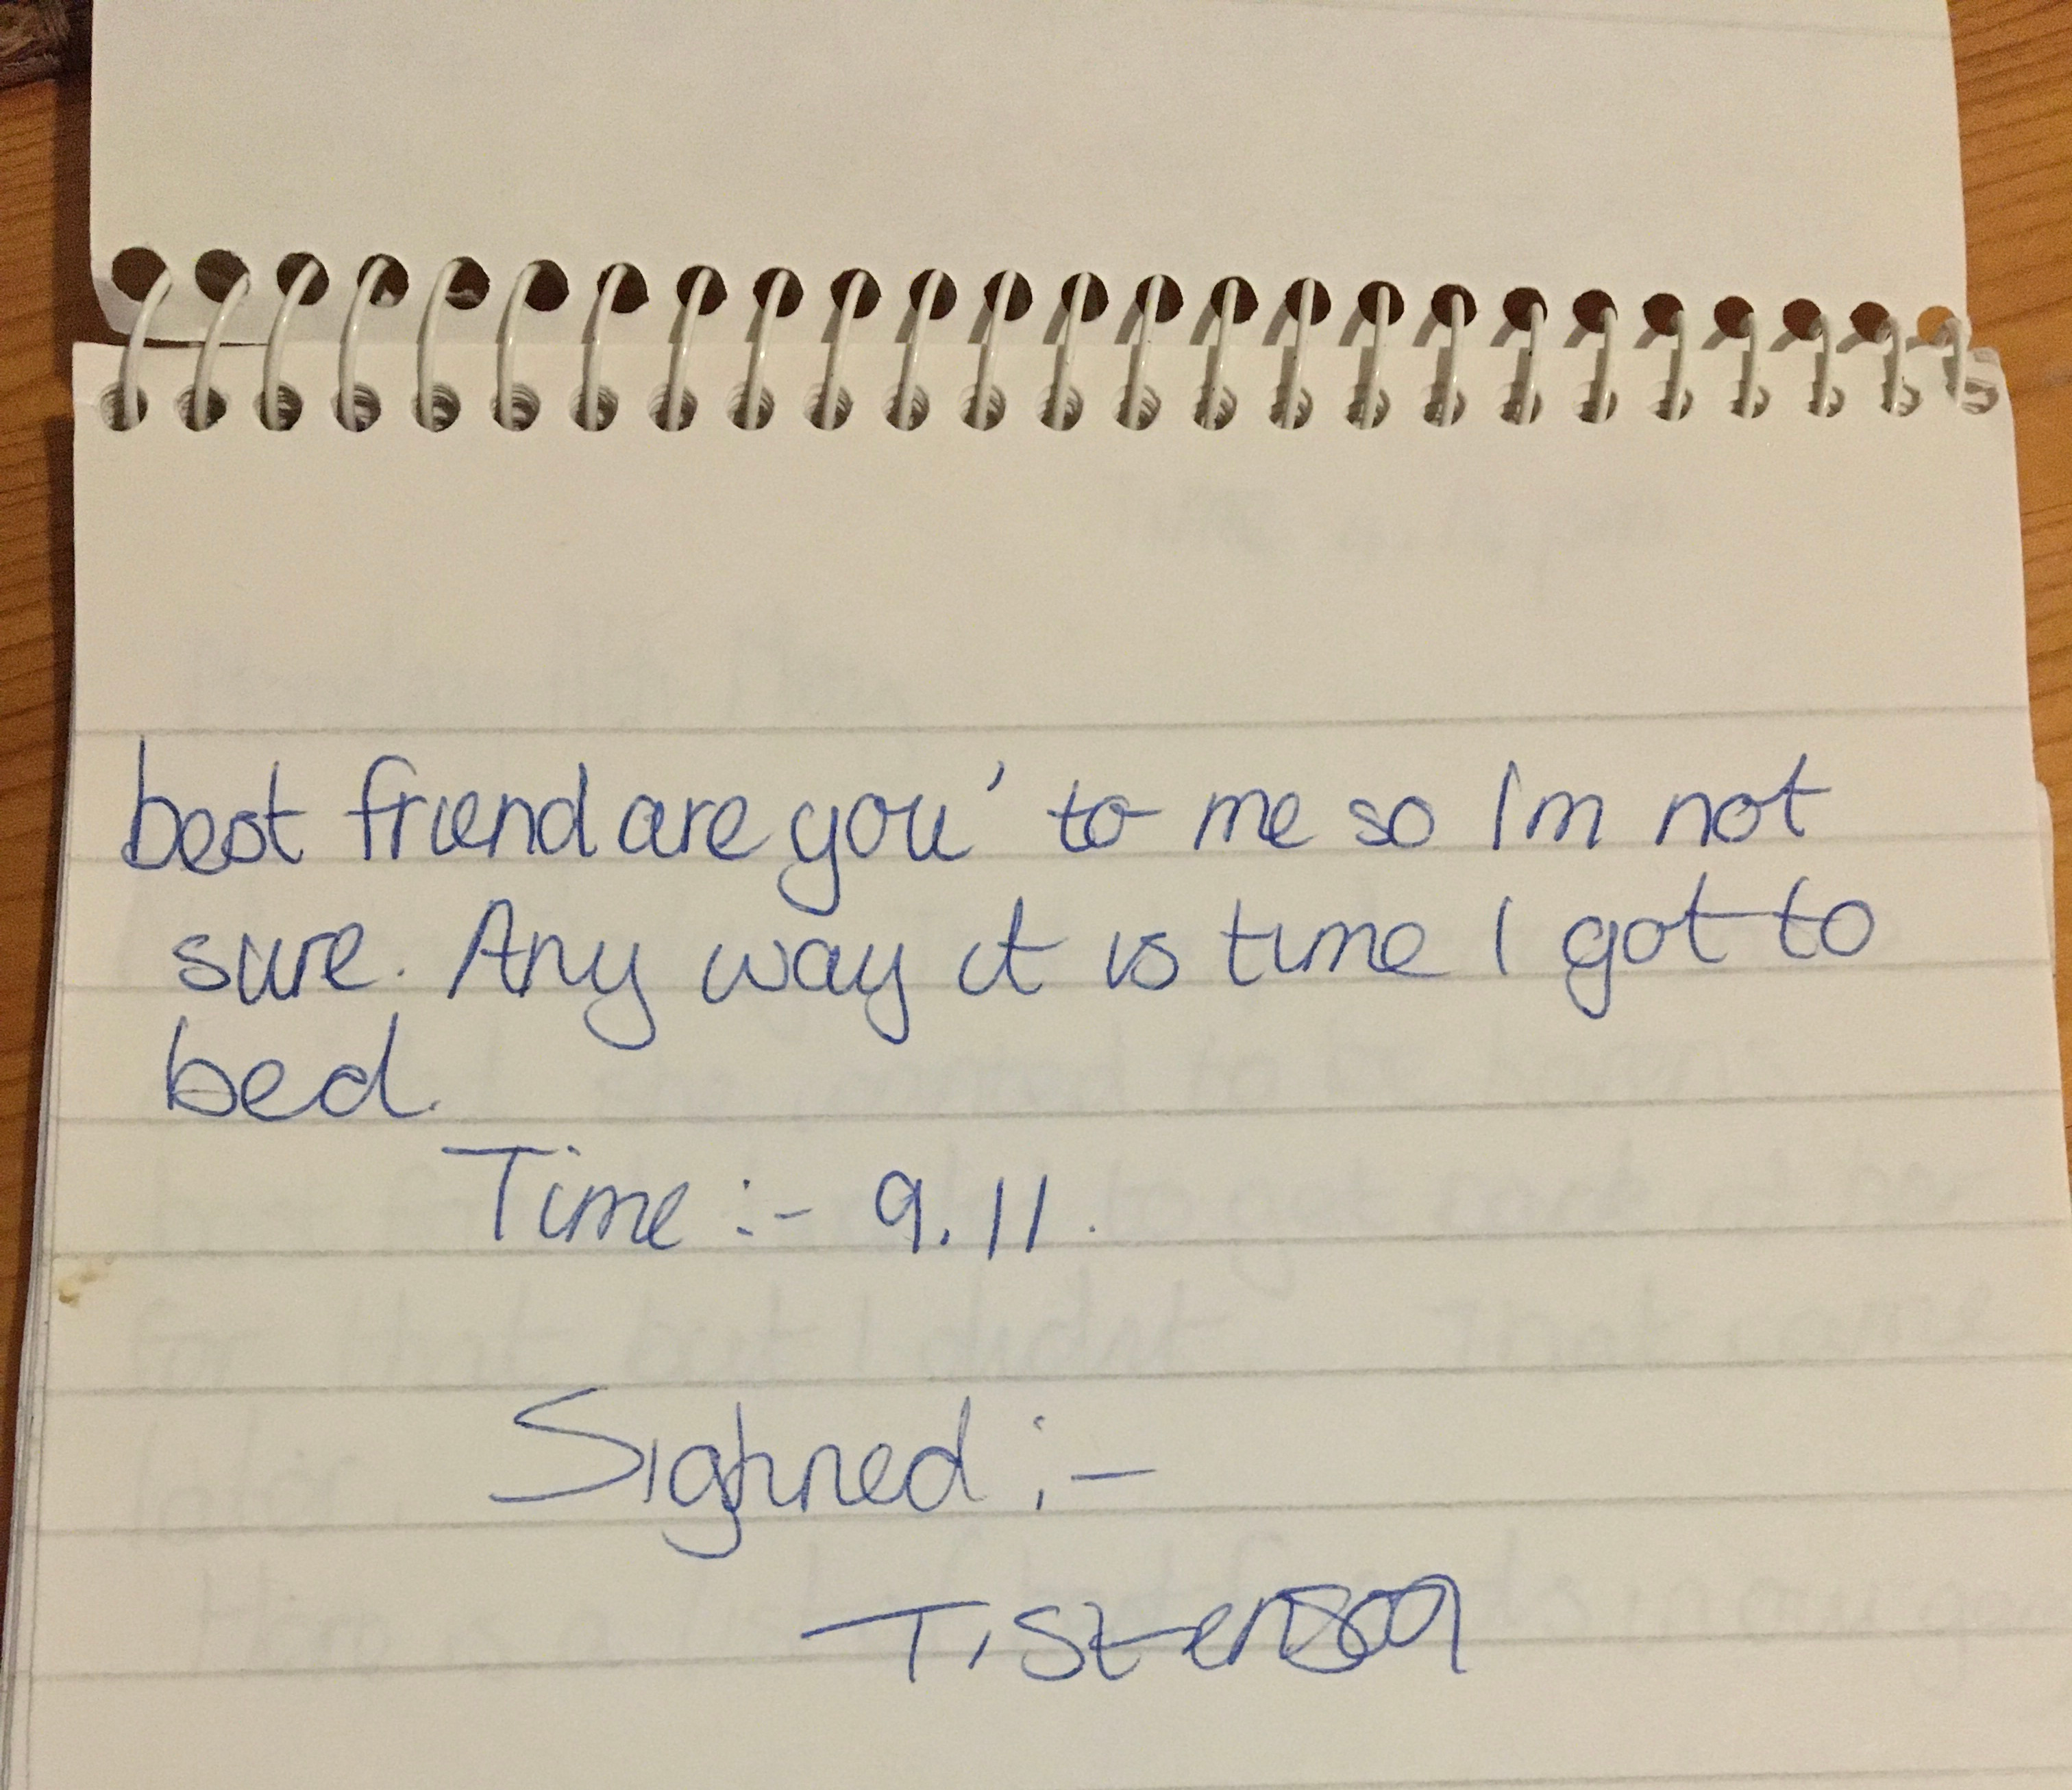 best friend are you' to me so I'm not
sure. Any way it is time I got to
bed.
Time :- 9.11.
Sighned :-